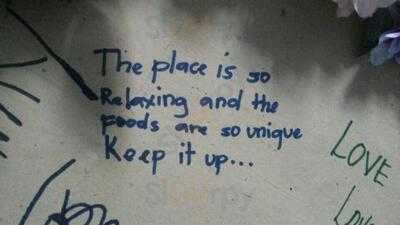 The place is so
Relaxing and the
Foods are so unique
Keep it up...
LOVE